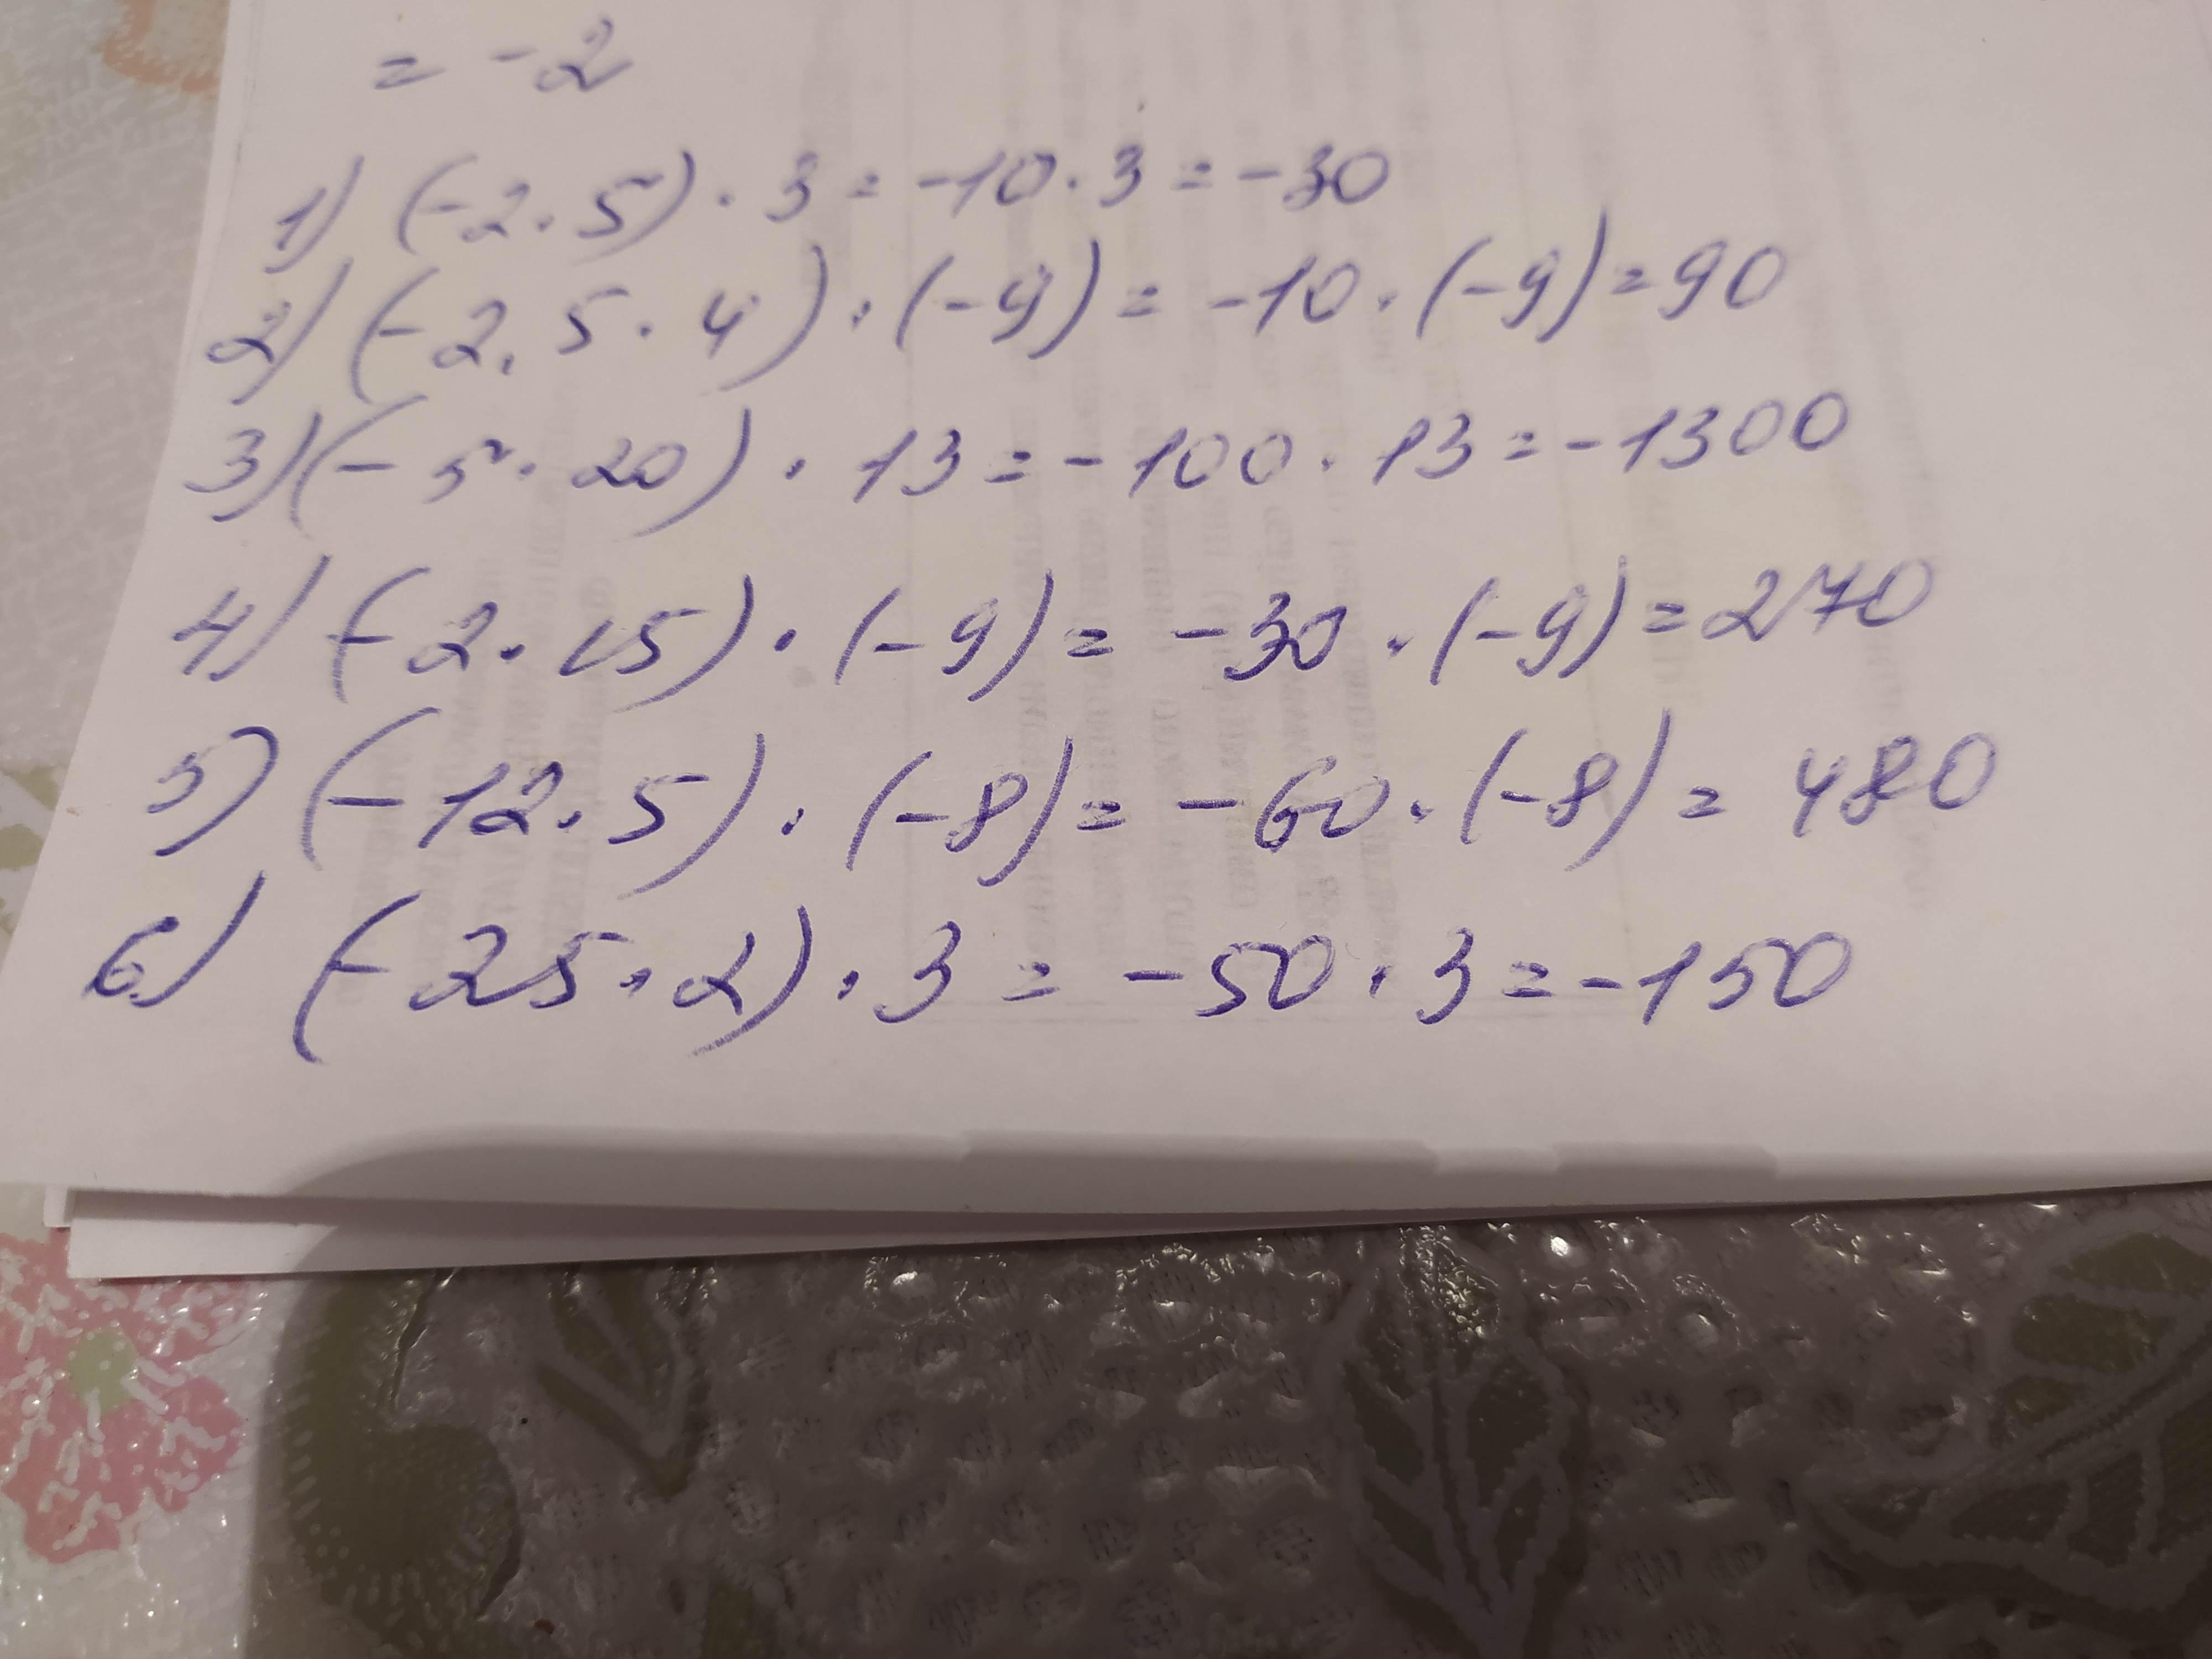 = -2
1) (-2·5)·3 = -10·3 = -30
2) (-2,5·4)·(-9) = -10·(-9) = 90
3) (-5·20)·13 = -100·13 = -1300
4) (-2·15)·(-9) = -30·(-9) = 270
5) (-12·5)·(-8) = -60·(-8) = 480
6) (-25·2)·3 = -50·3 = -150